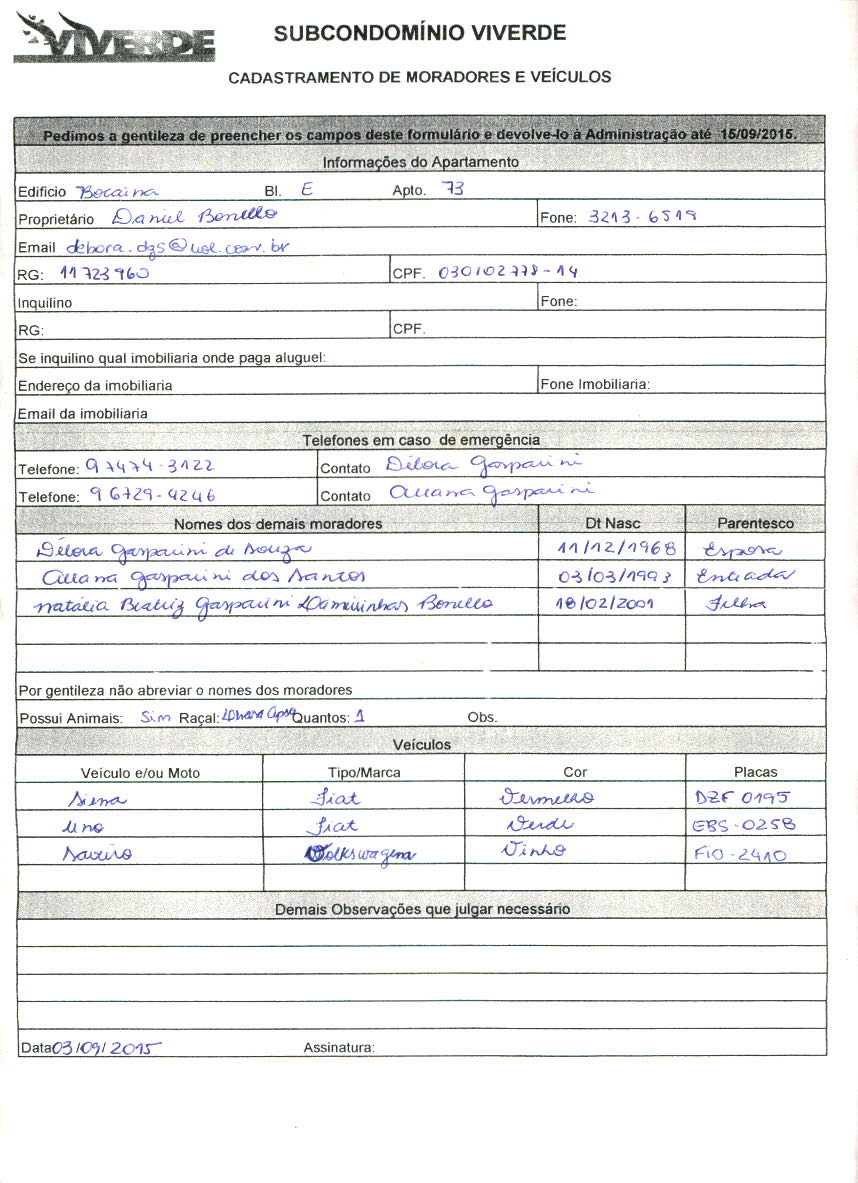 VIVERDE
SUBCONDOMÍNIO VIVERDE
CADASTRAMENTO DE MORADORES E VEÍCULOS
Pedimos a gentileza de preencher os campos deste formulário e devolve-lo à Administração até 15/09/2015.
Informações do Apartamento
Edificio Bocaina Bl. E Apto. 73
Proprietário Daniel Bonello Fone: 3213-6519
Email debora.dgs@uol.com.br
RG: 11723960 CPF. 030102778-14
Inquilino Fone:
RG: CPF.
Se inquilino qual imobiliaria onde paga aluguel:
Endereço da imobiliaria Fone Imobiliaria:
Email da imobiliaria
Telefones em caso de emergência
Telefone: 97474-3122 Contato Débora Gasparini
Telefone: 96729-4246 Contato Auana Gasparini
Nomes dos demais moradores Dt Nasc Parentesco
Débora Gasparini de Souza 11/12/1968 Esposa
Auana Gasparini dos Santos 03/03/1993 Enteada
Natália Beatriz Gasparini Bonello 18/02/2001 Filha
Por gentileza não abreviar o nomes dos moradores
Possui Animais: Sim Raçal: Lhasa Apso Quantos: 1 Obs.
Veículos
Veículo e/ou Moto Tipo/Marca Cor Placas
Siena Fiat Vermelho DZF 0195
Uno Fiat Verde EBS-0258
Saveiro Volkswagem Vinho FIO-2410
Demais Observações que julgar necessário
Data 03/09/2015 Assinatura: